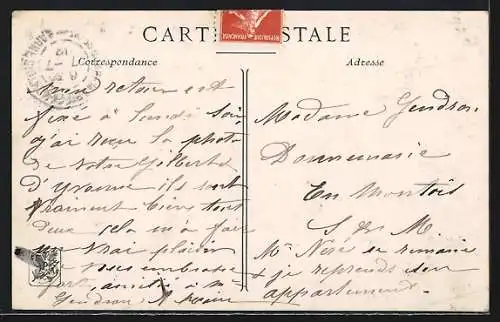 CARTE POSTALE
REPUBLIQUE FRANÇAISE
Correspondance
Mon retour est
fixé à lundi soir
j'ai reçu la photo
de votre Gilbert et
d'Yvonne ils sont
vraiment bien tous
deux cela m'a fait
un vrai plaisir
vous embrasse
fort, amitiés à
Gendron
Adresse
Madame Gendron
Donnemarie
En Montois
S et M.
Mr se remarie
& je reprends son
appartement.